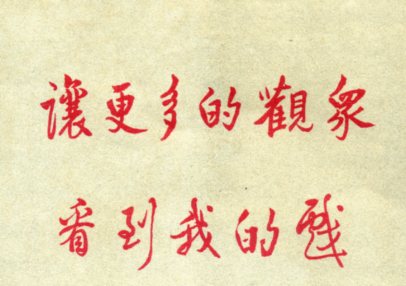 讓更多的觀眾
看到我的戲